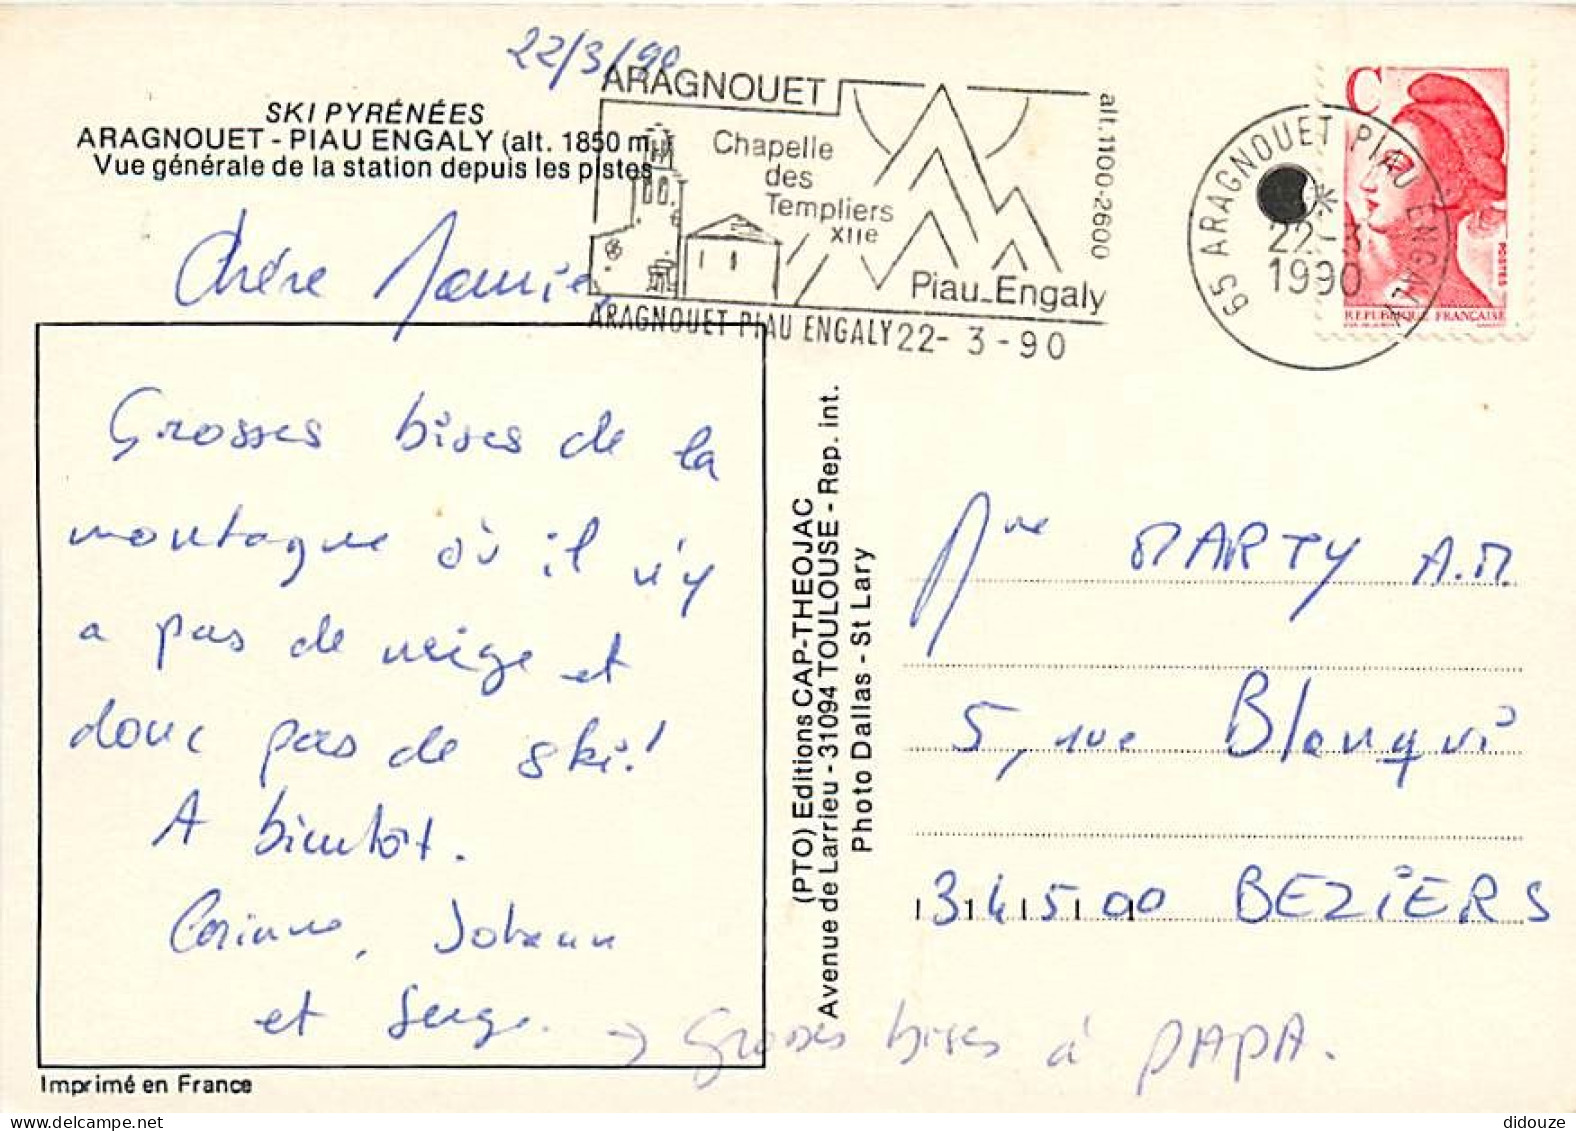 22/3/90
SKI PYRÉNÉES
ARAGNOUET - PIAU ENGALY (alt. 1850 m)
Vue générale de la station depuis les pistes
ARAGNOUET
Chapelle
des
Templiers
XIIe
alt. 1100-2600
Piau-Engaly
ARAGNOUET PIAU ENGALY 22-3-90
65 ARAGNOUET PIAU ENGALY
22-3
1990
C
POSTES
REPUBLIQUE FRANÇAISE
Chère Mamie,
Grosses bises de la
montagne où il n'y
a pas de neige et
donc pas de ski!
A bientôt.
Corinne, Johann
et Serge.
→ Grosses bises à PAPA.
(PTO) Editions CAP-THEOJAC
Avenue de Larrieu - 31094 TOULOUSE - Rep. int.
Photo Dallas - St Lary
Mme MARTY A.M.
5, rue Blanqui
34500 BEZIERS
Imprimé en France
didouze